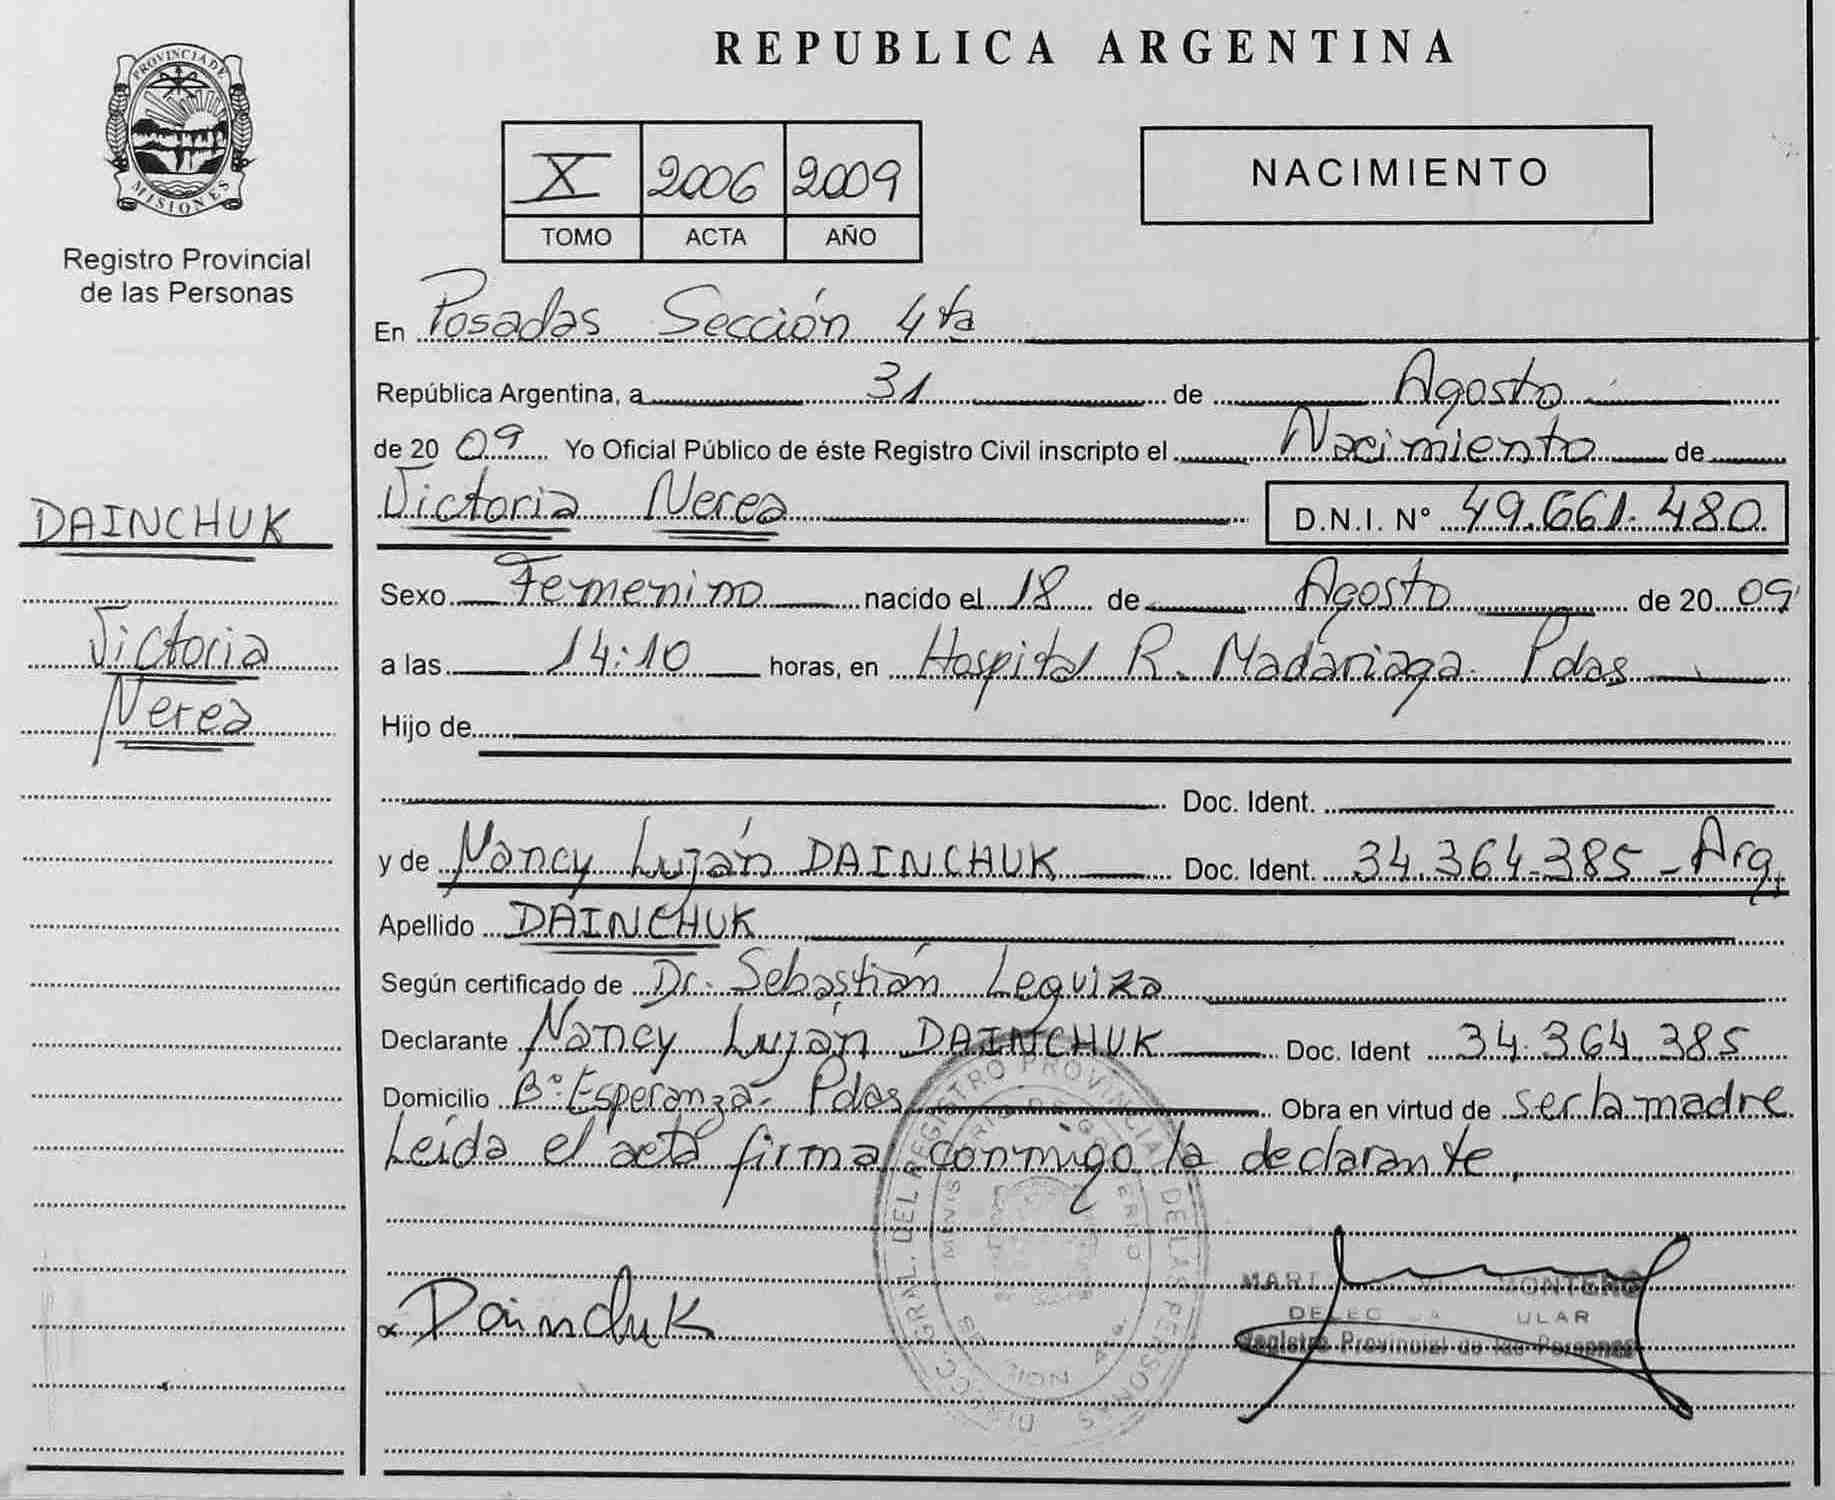 REPUBLICA ARGENTINA
PROVINCIA DE
MISIONES
Registro Provincial
de las Personas
X 2006 2009
TOMO ACTA AÑO
NACIMIENTO
En Posadas Sección 4ta
República Argentina, a 31 de Agosto
de 20 09 Yo Oficial Público de éste Registro Civil inscripto el Nacimiento de
Victoria Nerea D.N.I. N° 49.661.480
DAINCHUK
Victoria
Nerea
Sexo Femenino nacido el 18 de Agosto de 20 09
a las 14:10 horas, en Hospital R. Madariaga. Pdas
Hijo de
Doc. Ident.
y de Nancy Luján DAINCHUK Doc. Ident. 34.364.385 - Arg.
Apellido DAINCHUK
Según certificado de Dr. Sebastián Leguiza
Declarante Nancy Luján DAINCHUK Doc. Ident 34.364.385
Domicilio B° Esperanza - Pdas Obra en virtud de ser la madre
Leída el acta firma conmigo la declarante.
GRAL. DEL REGISTRO PROVINCIAL DE LAS PERSONAS
Dainchuk
MONTERO
Registro Provincial de las Personas